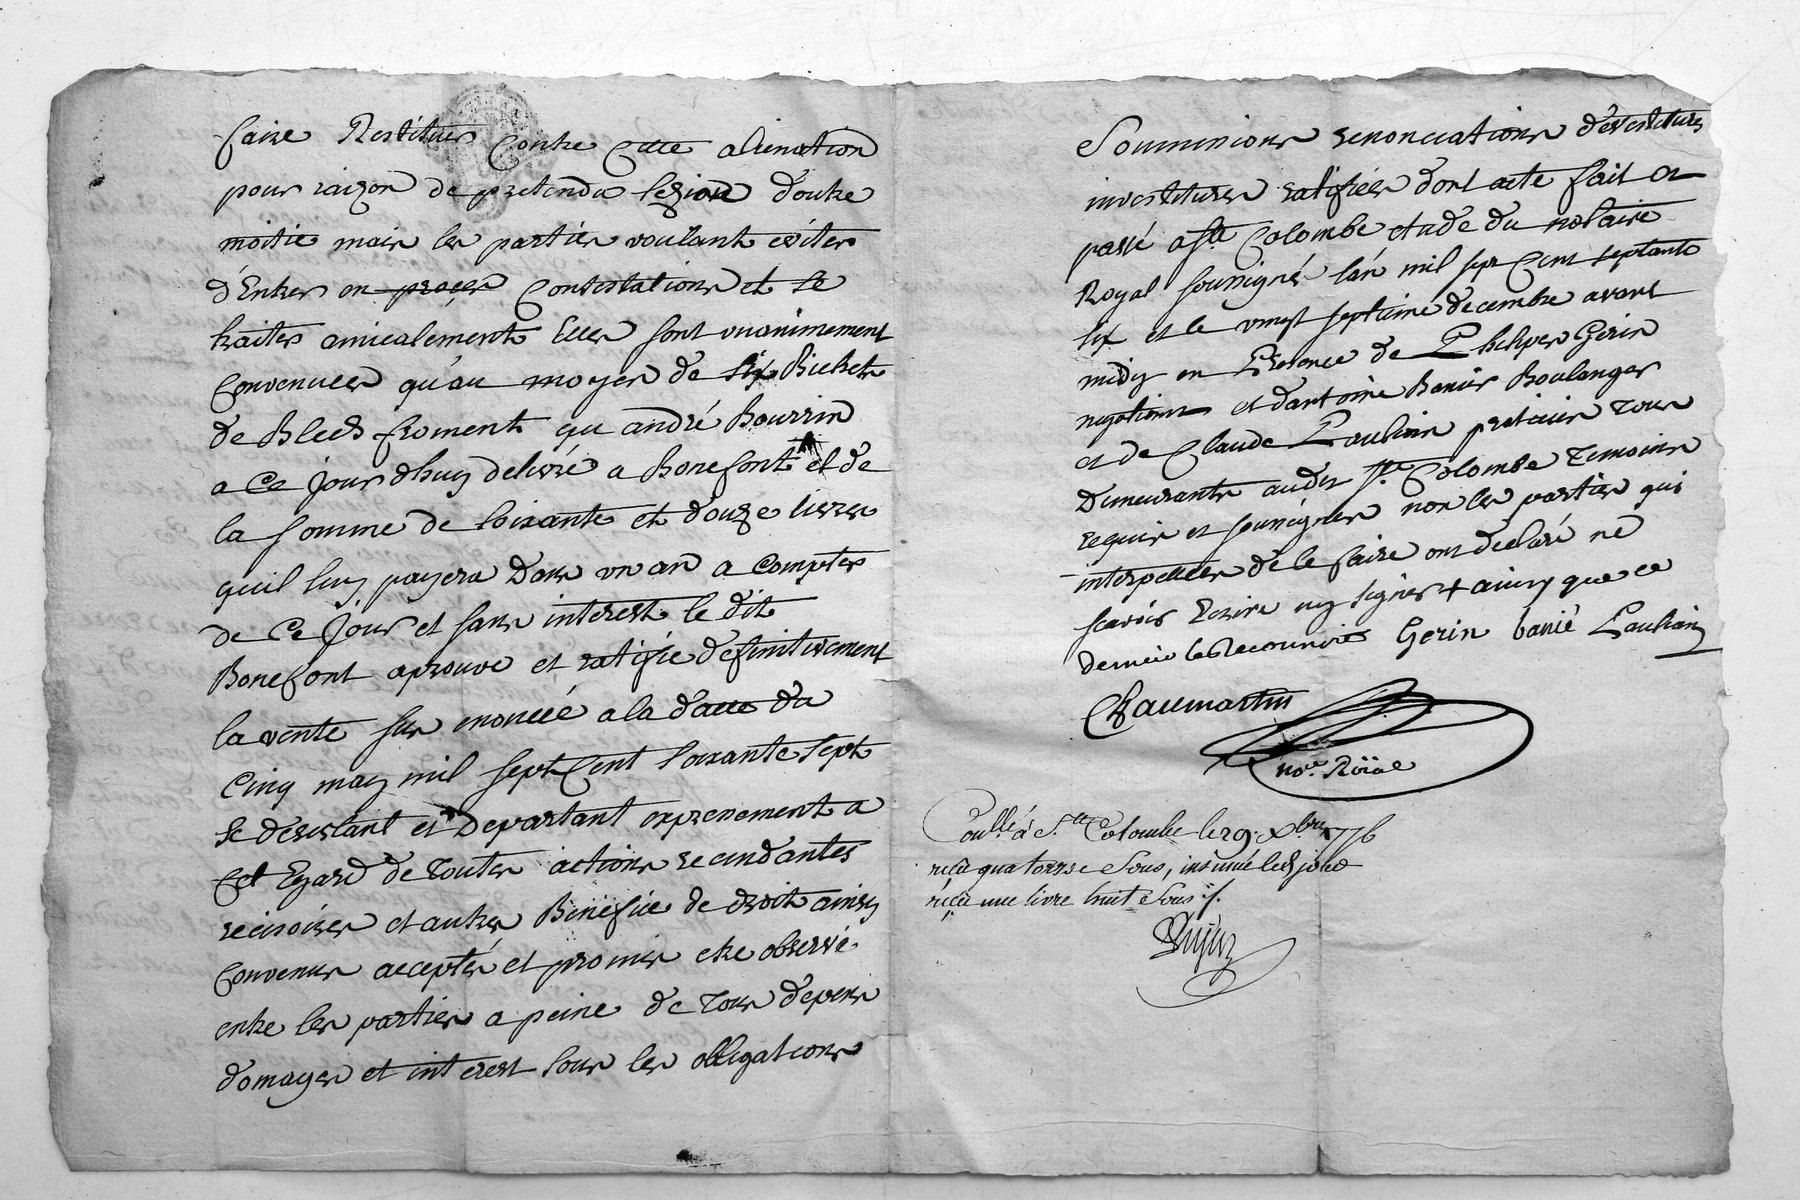 faire Restituer Contre Cette alienation
pour raizon de pretendu lezion d'outre
moitie mais les parties voulant eviter
d'Entrer en proces Contestations et Se
traiter amicalement Elles sont unanimement
Convenues qu'au moyen de six Bichets
de Bleds froment qu andré Bourrin
a Ce jour dhuy delivré a Bonefont et de
la somme de soixante et douze livres
quil luy payera Dans un an a Compter
de Ce jour et sans interest le dit
Bonefont aprouve et ratifie definitivement
la vente sus enoncée a la datte du
Cinq may mil sept Cent soixante sept
se desistant et Departant expressement a
Cet Egard de toutes actions recindantes
recisoires et autres Benefice de droit ainsy
Convenus acceptés et promis etre observé
entre les parties a peine de tous depens
domages et interest sous les obligations
Soummions renonciations devestitures
investitures ratifiées dont acte fait et
passé a Ste Colombe etude du notaire
Royal soussigné lan mil sept Cent septante
six et le vingt septieme decembre avant
midy en Presence de Philipes Gerin
negotiant et d'antoine Banier Boulanger
et de Claude Paulian praticien tous
Demeurants audit Ste Colombe temoins
requis et soussignes non les parties qui
interpellées de le faire ont declaré ne
scavoir Ecrire ny signer + ainsy que ce
dernier Gerin banié Paulian
Chaumartin
nore. Roïal
Conllé á Ste Colombe le 29. Xbre 1776
reçu quatorze Sous, insinué led jour
reçu une livre huit Sous ./.